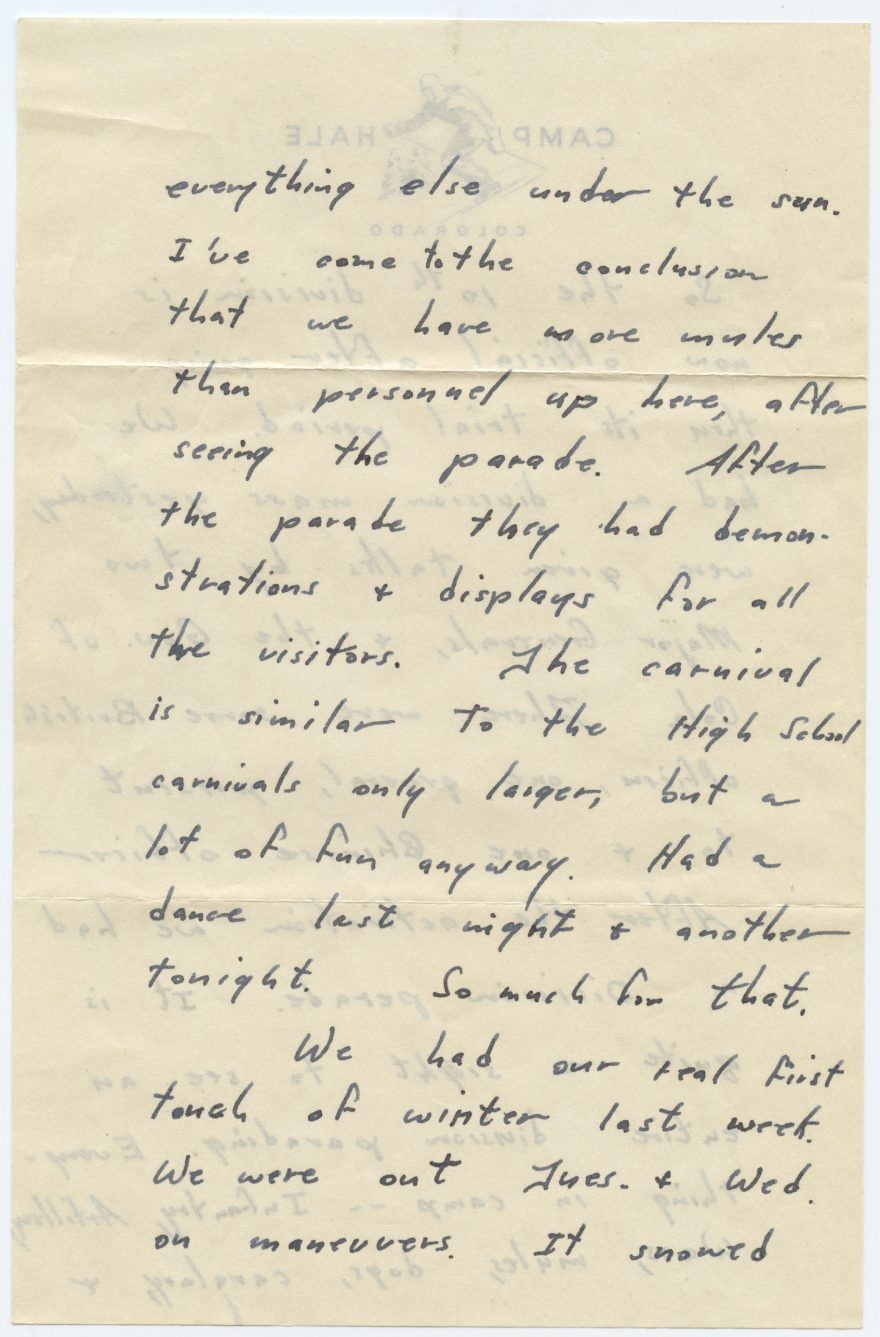 everything else under the sun.
I've come to the conclusion
that we have more mules
than personnel up here, after
seeing the parade. After
the parade they had demon-
strations & displays for all
the visitors. The carnival
is similar to the High School
carnivals only larger, but a
lot of fun anyway. Had a
dance last night & another
tonight. So much for that.
We had our real first
touch of winter last week.
We were out Tues. & Wed.
on maneuvers. It snowed